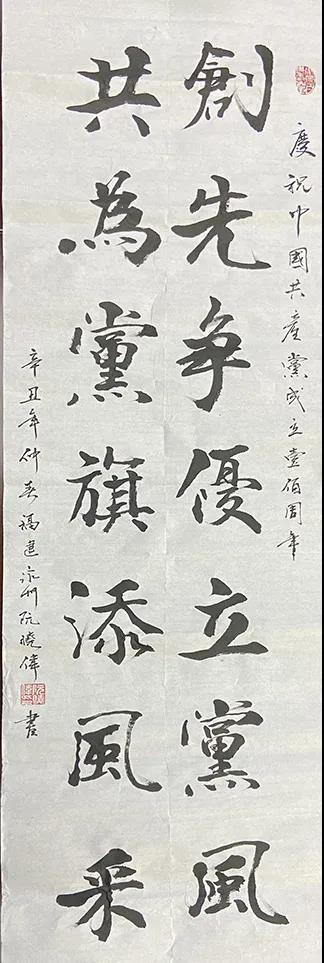 慶祝中國共産黨成立壹佰周年
創先争優立黨風
共為黨旗添風采
辛丑年仲春福建漳州阮曉偉書